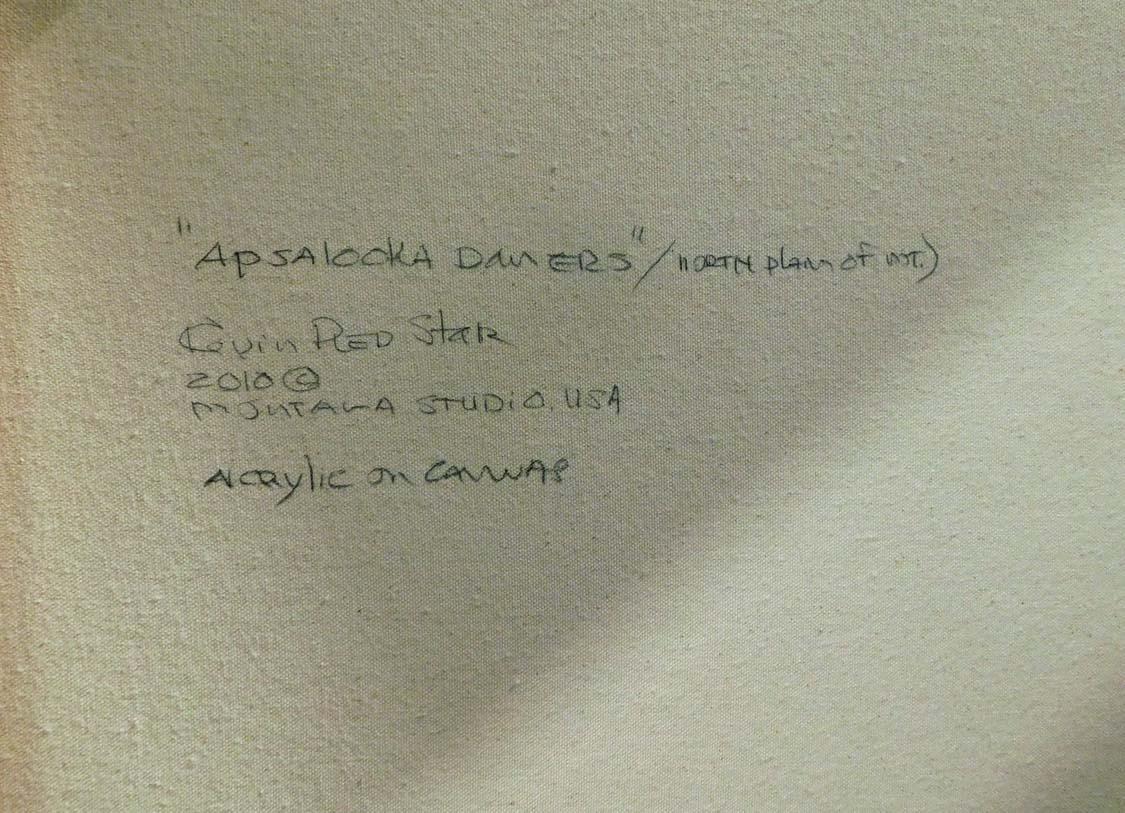 "Apsalooka Dancers" / North plains of MT.)
Kevin Red Star
2010 ©
Montana Studio, USA
Acrylic on Canvas